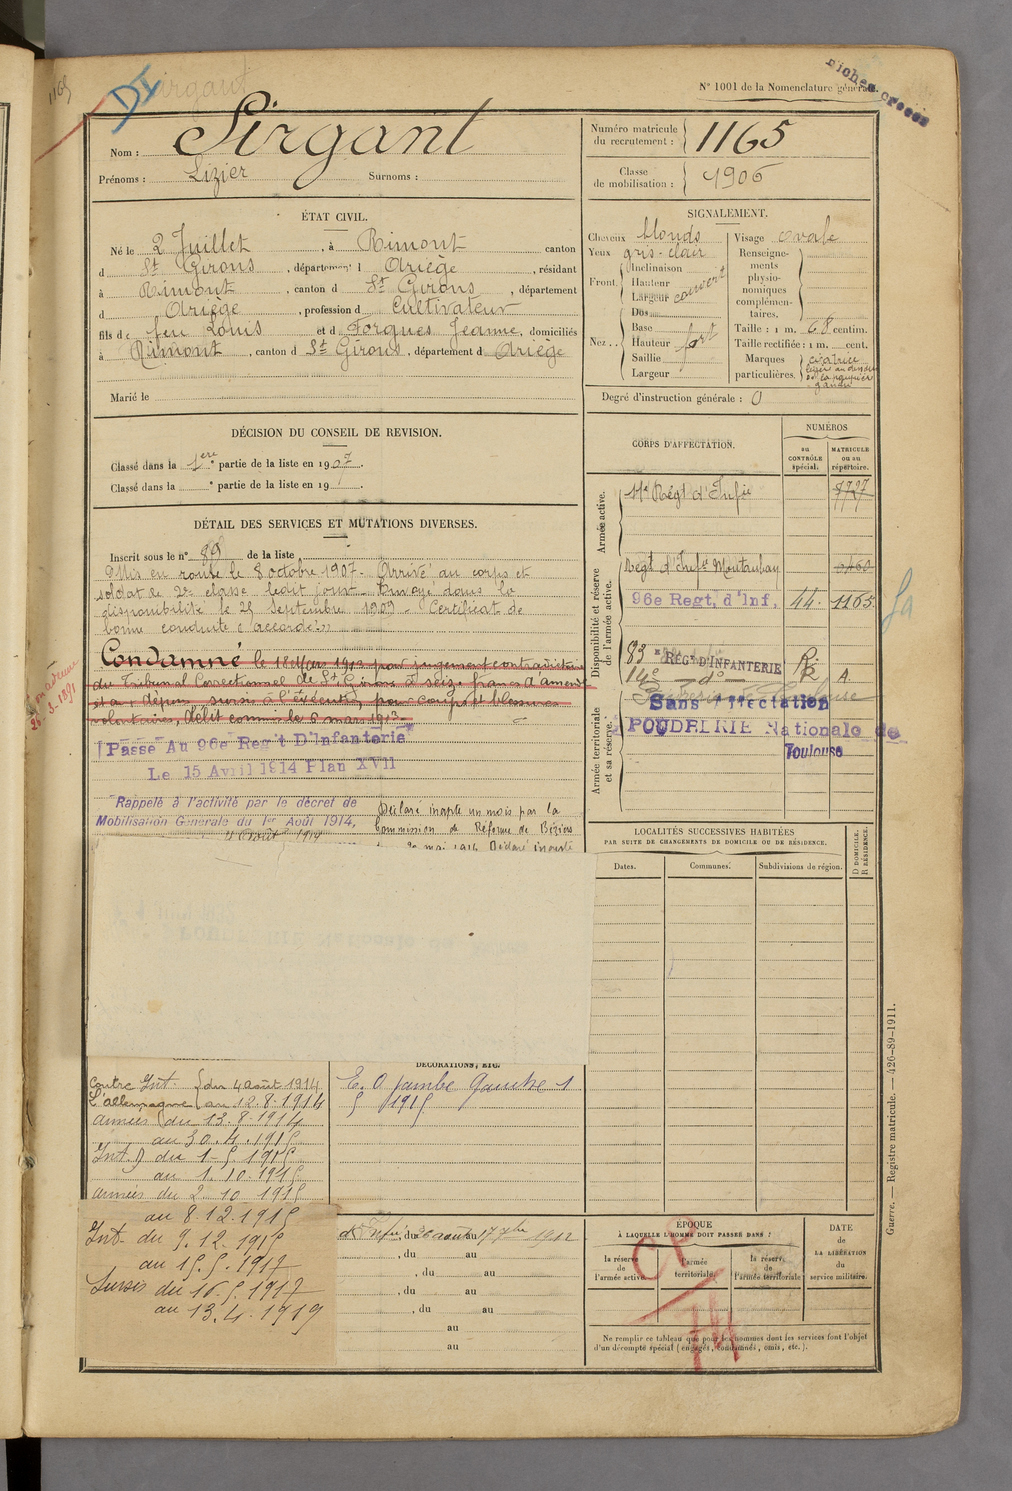 1165
DI
Sirgant
fiches croces
N° 1001 de la Nomenclature générale.
Nom : Sirgant
Prénoms : Lizier Surnoms :
Numéro matricule du recrutement : 1165
Classe de mobilisation : 1906
ÉTAT CIVIL.
Né le 2 Juillet , à Rimont canton
d St Girons , département d Ariège , résidant
à Rimont , canton d St Girons , département
d Ariège , profession d Cultivateur
fils de feu Louis et d Forgues Jeanne, domiciliés
à Rimont , canton d St Girons, département d Ariège
Marié le
SIGNALEMENT.
Cheveux blonds
Yeux gris-clair
Front. Inclinaison
Hauteur
Largeur couvert
Nez . . Dos
Base
Hauteur fort
Saillie
Largeur
Visage ovale
Renseigne-
ments
physio-
nomiques
complémen-
taires.
Taille : 1 m. 68 centim.
Taille rectifiée : 1 m. cent.
Marques particulières. cicatrice
Degré d'instruction générale : 0
DÉCISION DU CONSEIL DE REVISION.
Classé dans la 1ere partie de la liste en 1907.
Classé dans la e partie de la liste en 19 .
DÉTAIL DES SERVICES ET MUTATIONS DIVERSES.
Inscrit sous le n° 89 de la liste
Mis en route le 8 octobre 1907 - Arrivé au corps et
soldat de 2e classe ledit jour. Envoyé dans la
disponibilité le 25 Septembre 1909 - Certificat de
bonne conduite "accordé"
Condamné le 18 Mars 1913 par jugement contradictoire
du Tribunal Correctionnel de St Girons à seize francs d'amende
et aux dépens, sursis à l'exécution, pour coups et blessures
volontaires, délit commis le 6 mars 1913
Passe Au 96e Reg't D'Infanterie
Le 15 Avril 1914 Plan XVII
Rappelé à l'activité par le décret de
Mobilisation Générale du 1er Août 1914,
4 Août 1914
Déclaré inapte un mois par la
Commission de Réforme de Béziers
CORPS D'AFFECTATION.
NUMÉROS
au CONTRÔLE spécial.
MATRICULE ou au répertoire.
Armée active.
Régt d'Infie
7727
Disponibilité et réserve de l'armée active.
Régt d'Infie Montauban
96e Regt. d'Inf. 44. 1165
83e REGt D'INFANTERIE
14e — do — R A
Armée territoriale et sa réserve.
Sans Affectation
POUDRERIE Nationale de
Toulouse
LOCALITÉS SUCCESSIVES HABITÉES
PAR SUITE DE CHANGEMENTS DE DOMICILE OU DE RÉSIDENCE.
Dates. Communes. Subdivisions de région. D DOMICILE. R RÉSIDENCE.
DÉCORATIONS, ETC.
contre Int. du 4 août 1914
L'allemagne au 12.8.1914
armées du 13.8.1914
au 30.4.1915
Int. D du 1-5.1915
au 1.10.1915
armées du 2.10 1915
au 8.12.1915
Int. du 9.12.1915
au 15.5.1917
Sursis du 16.5.1917
au 13.4.1919
E. O jambe gauche 1
5 1915
d'Infie, du 26 août au 17 7bre 1912
, du au
, du au
, du au
, du au
au
au
ÉPOQUE
À LAQUELLE L'HOMME DOIT PASSER DANS :
la réserve de l'armée active.
l'armée territoriale.
la réserve de l'armée territoriale
DATE
de
LA LIBÉRATION
du
service militaire.
CP
Ne remplir ce tableau que pour les hommes dont les services font l'objet
d'un décompte spécial (engagés, condamnés, omis, etc.).
Guerre. — Registre matricule. — 426-89-1911.